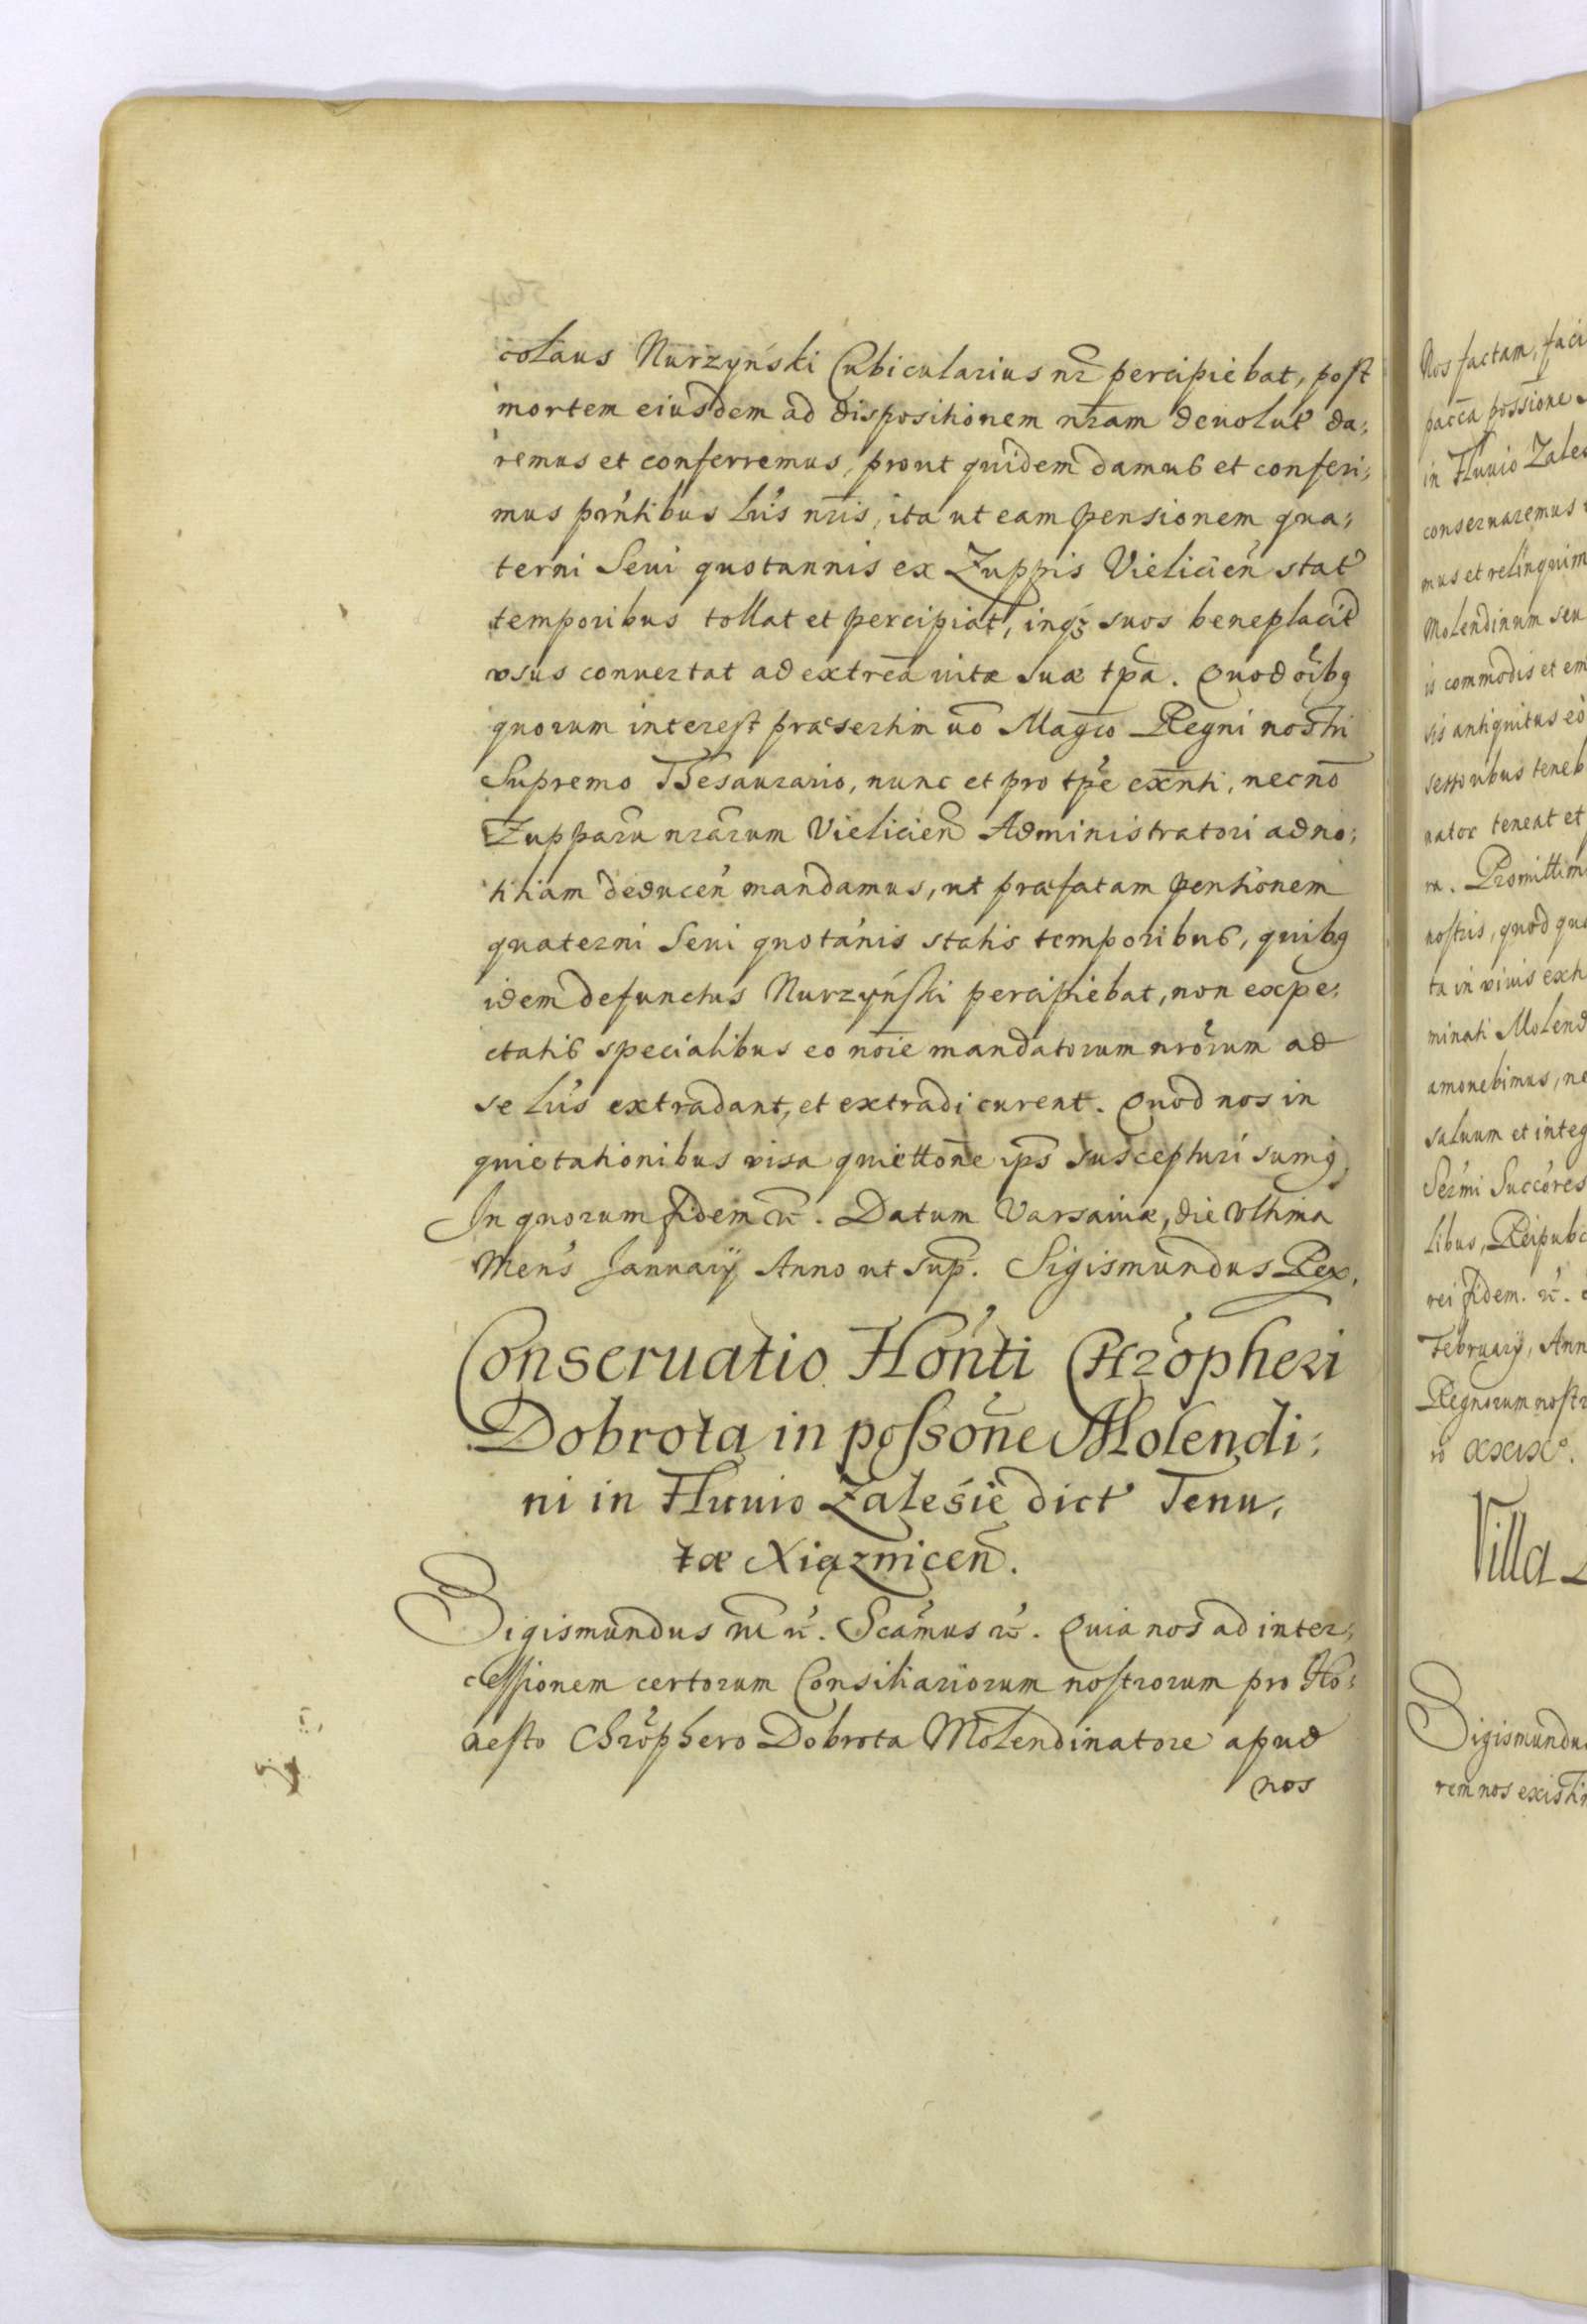 colaus Nurzyński Cubicularius nr̃ percipiebat, post
mortem eiusdem ad dispositionem nr̃am deuolut̃ da:
remus et conferremus, prout quidem damus et conferi:
mus prñtibus lr̃is nr̃is, ita ut eam pensionem qua:
terni Seui quotannis ex Zuppis Vieliciẽn stat̃
temporibus tollat et percipiat, inq́ꝫ suos beneplacit̃
vsus conuertat ad extrẽa uitæ suæ tp̃a. Quod oĩbꝫ
quorum interest præsertim uõ Mag̃co Regni nostri
Supremo Thesaurario, nunc et pro tp̃e ex̃nti, necnõ
Zupparũ nr̃arum Vieliciẽn Administratori ad no:
titiam deducẽn mandamus, ut præfatam pensionem
quaterni Seui quotãnis statis temporibus, quibꝫ
idem defunctus Nurzyński percipiebat, non expe:
ctatis specialibus eo noĩe mandatorum nr̃orum ad
se lr̃is extradant, et extradi curent. Quod nos in
quietationibus visa quiettõne ip̃s suscepturi sumꝰ
In quorum fidem ꝛc̃. Datum Varsauiæ, die Vltima
Mens̃ Januarij Anno ut sup̃. Sigismundus Rex,
Conseruatio Hont̃i Chrõpheri
Dobrota in possõne Molendi:
ni in Fluuio Zalesie dict̃ Tenu,
tæ Xiąznicẽn.
Sigismundus III ꝛc̃. Scãmus ꝛc̃. Quia nos ad inter:
cessionem certorum Consiliariorum nostrorum pro Ho:
nesto Chrõphero Dobrota Molendinatore apud
nos
Nos factam, faci
pacc̃a possione
in Fluuio Zales
conseruaremus
mus et relinquim
Molendinum seu
is commodis et em
sis antiquitus eo
ssoribus teneb
nator teneat et
ra. Promittim
nostris, quod qua
ta in viuis exti
minati Molend
amouebimus, ne
saluum et integ
Ser̃mi Succõres
libus, Reipubc
rei fidem. ꝛc̃.
February, Ann
Regnorum nostr
XXXIX°.
Villa
Sigismundu
rem nos existi